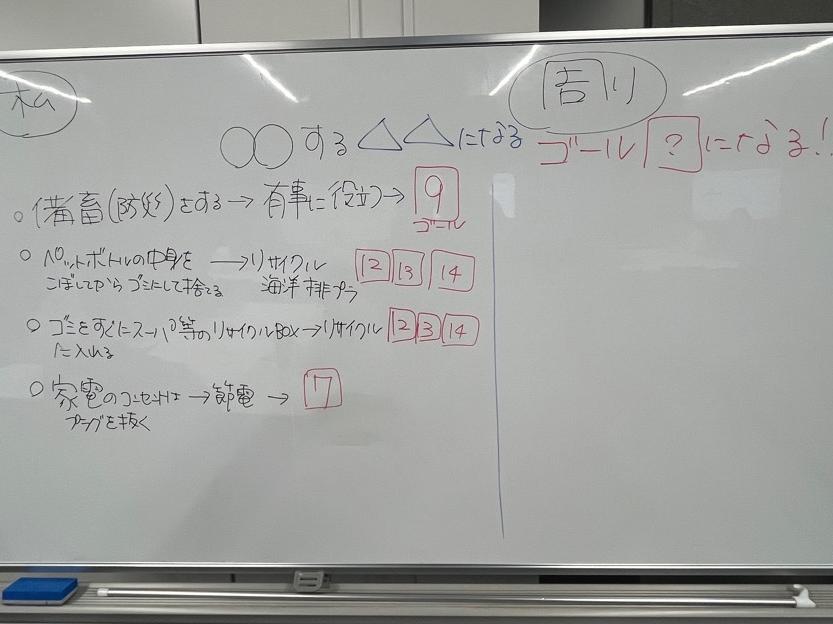 私
周り
○○する△△になる
ゴール ? になる!!
○ 備畜(防災)をする→有事に役立つ→ 9
ゴール
○ ペットボトルの中身を →リサイクル 12 13 14
こぼしてからゴミにして捨てる 海洋排プラ
○ ゴミをすぐにスーパー等のリサイクルBOX→リサイクル 12 3 14
に入れる
○ 家電のコンセントは →節電 → 7
プラグを抜く